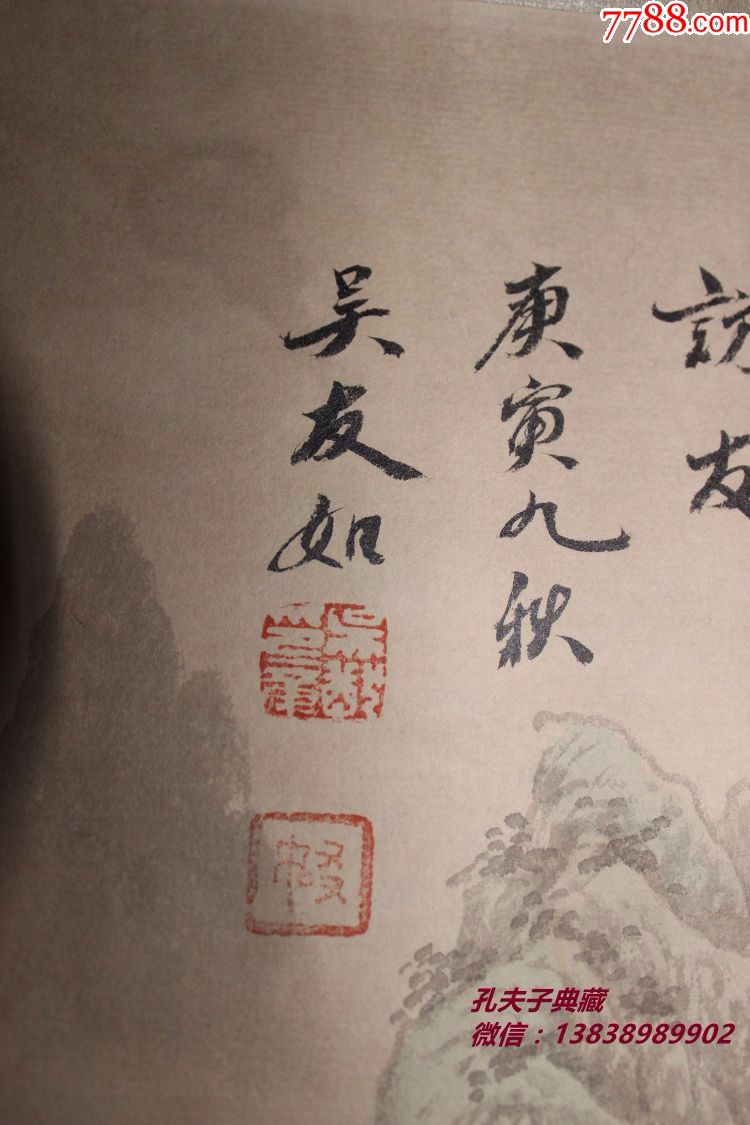 7788.com
訪友
庚寅九秋
吴友如
孔夫子典藏
微信：13838989902